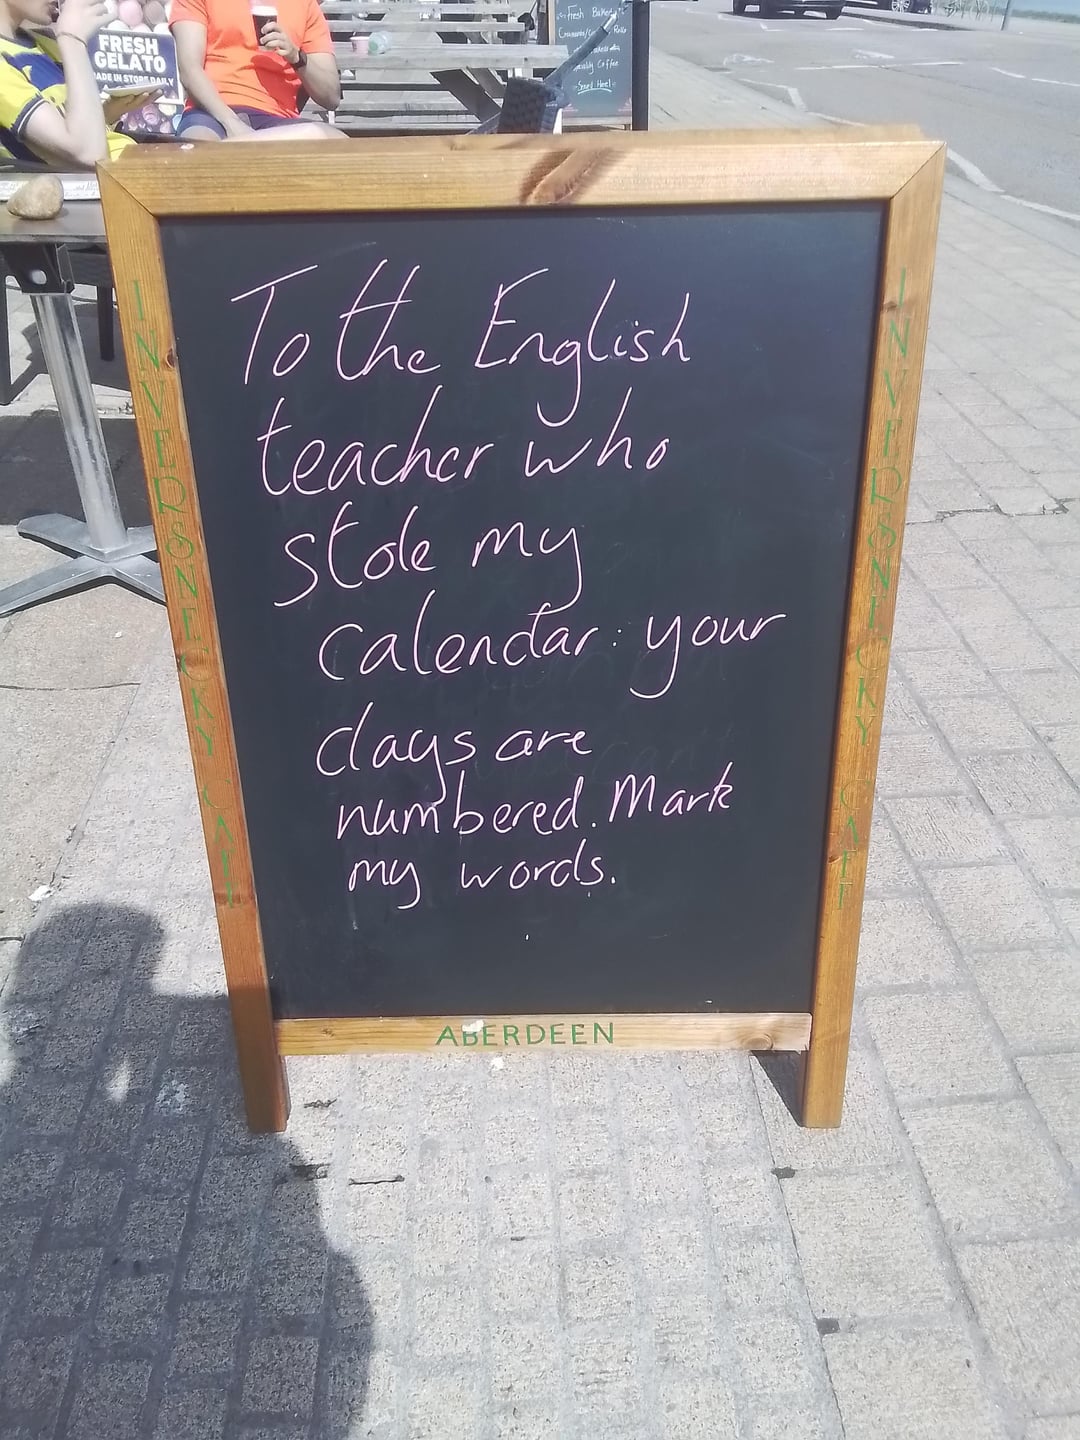 FRESH
GELATO
MADE IN STORE DAILY
Fresh
To the English
teacher who
stole my
calendar: your
days are
numbered. Mark
my words.
INVERSNECKY CAFE
INVERSNECKY CAFE
ABERDEEN